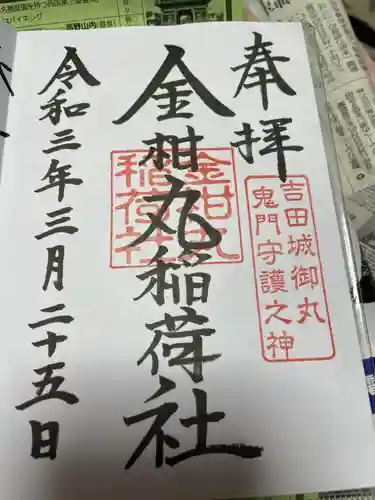 奉拝
吉田城御丸
鬼門守護之神
金柑丸稲荷社
金柑丸
稲荷社
令和三年三月二十五日